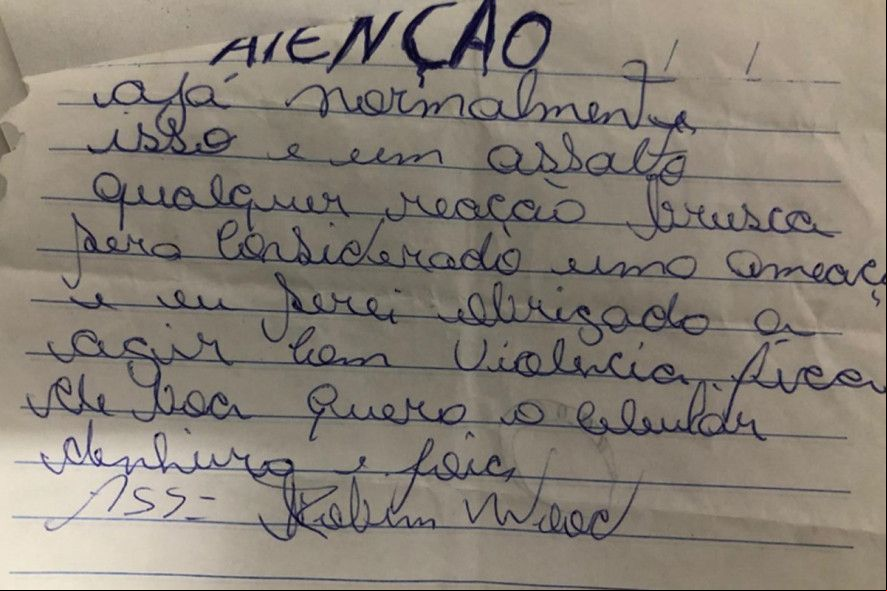 ATENÇÃO
aja normalmente
isso e um assalto
qualquer reação brusca
sera considerado uma ameaç
e eu serei obrigado a
agir com violencia, fica
de boa quero o celular
denhiro e joias
Ass- Robin Wood